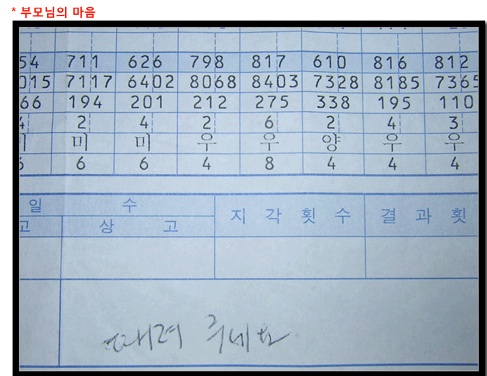 * 부모님의 마음
54 711 626 798 817 610 816 812
015 7117 6402 8068 8403 7328 8185 7365
66 194 201 212 275 338 195 110
4 2 4 2 6 2 4 3
미 미 미 우 우 양 우 우
6 6 6 4 8 4 4 4
일 수 지 각 횟 수 결 과 횟
고 상 고
때려 주세요